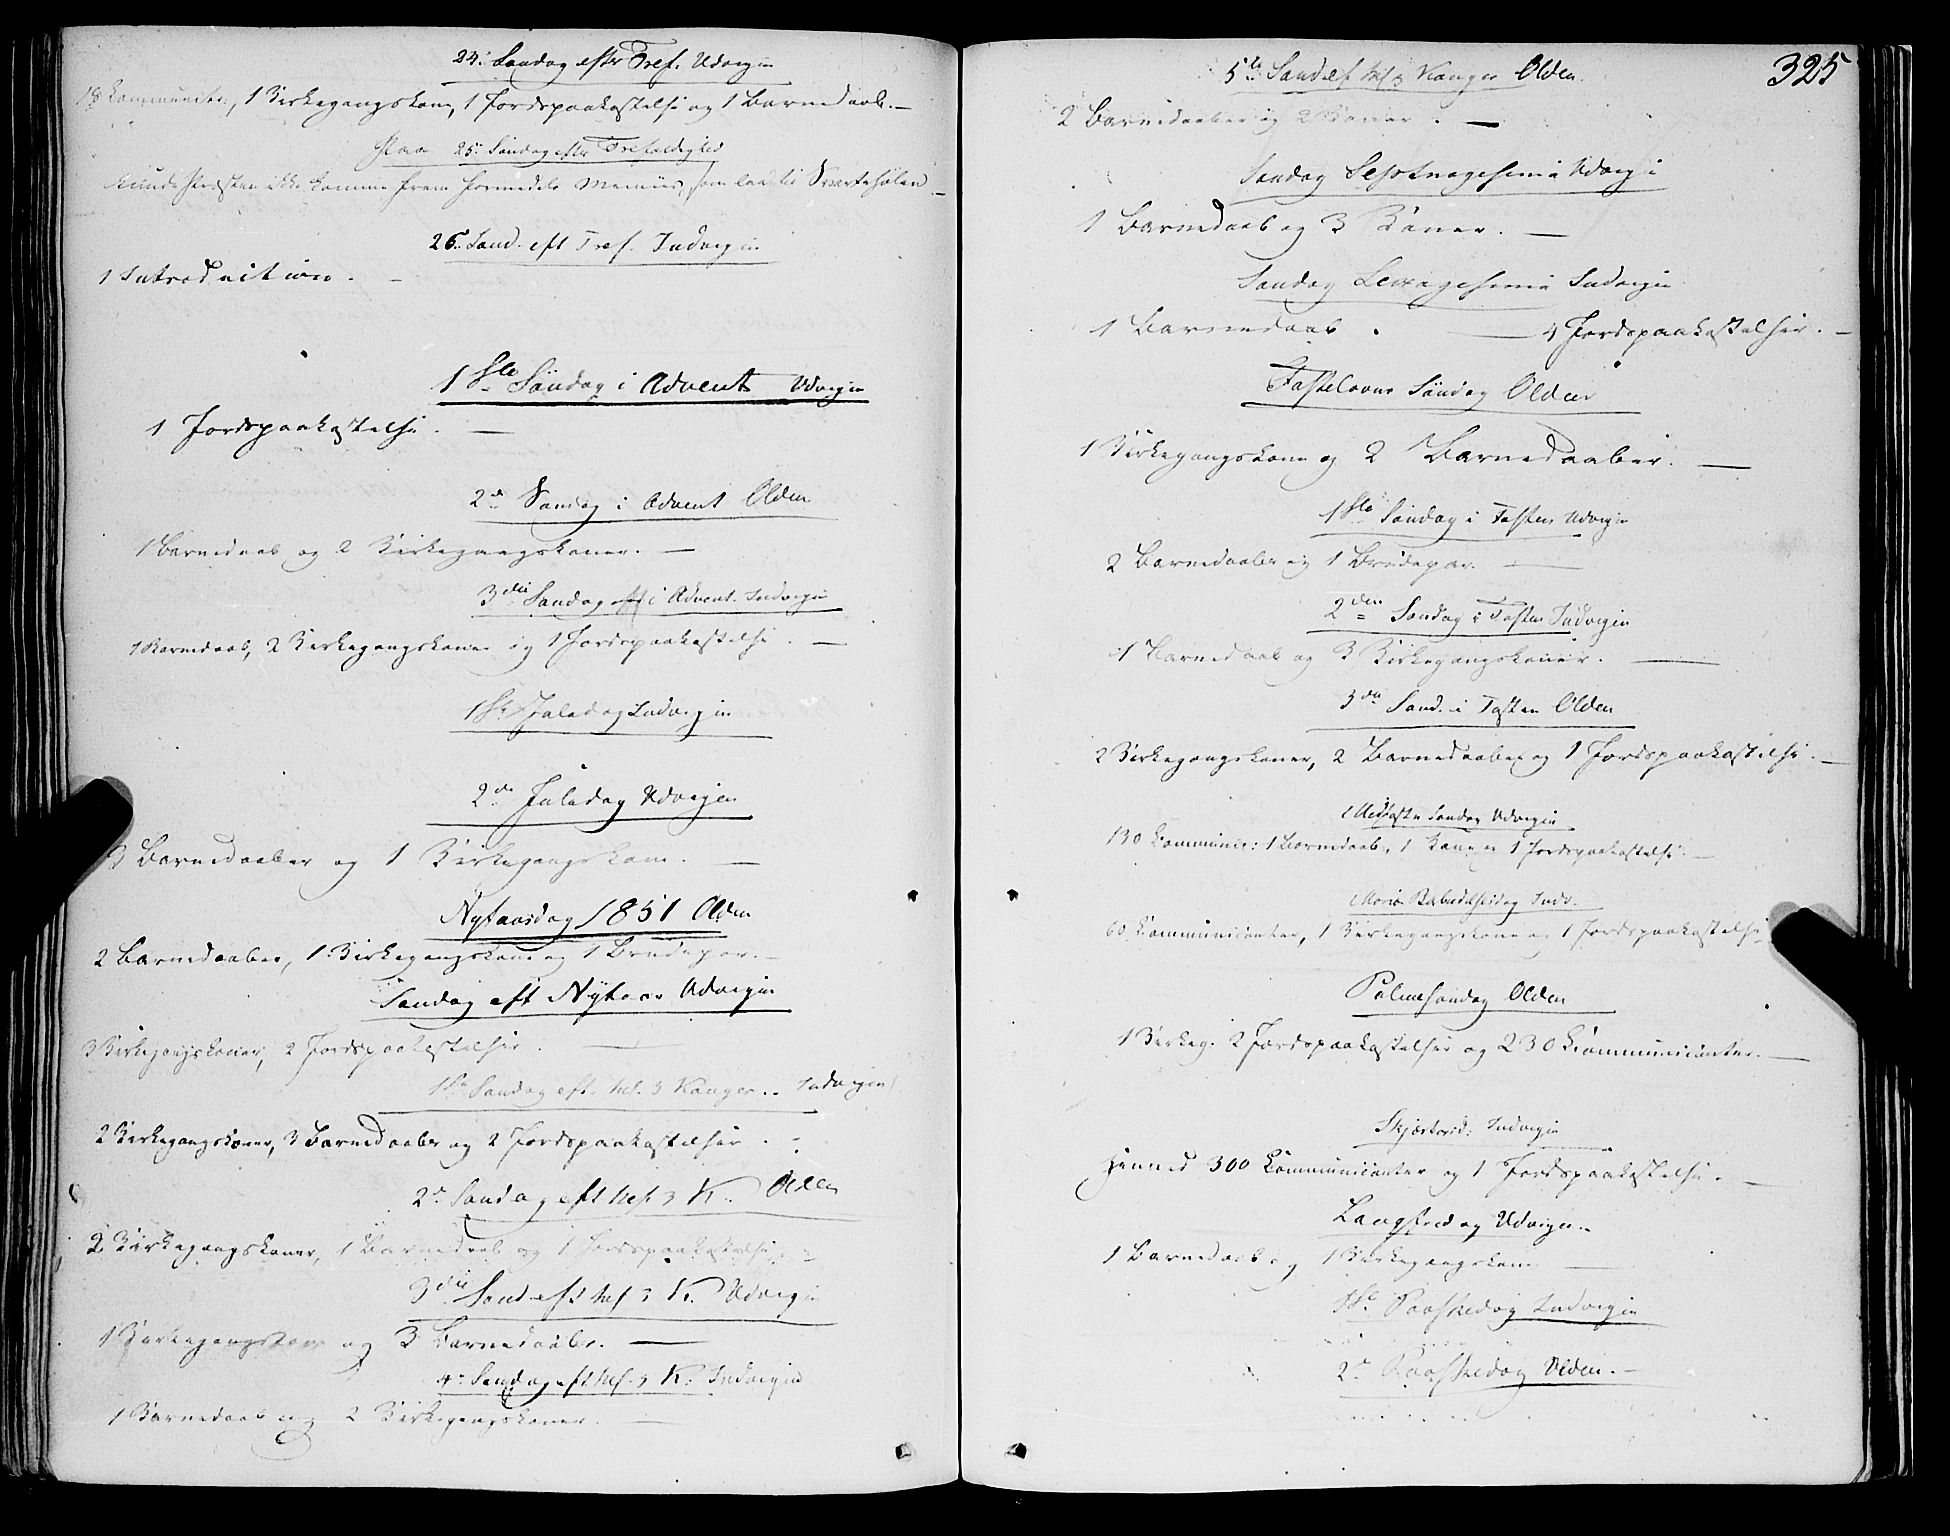 24. Søndag efter Tref. Udvigen
18 Communic., 1 Kirkegangskone, 1 Jordspaakastelse og 1 Barnedaab.—
Paa 25. Søndag efter Trefoldighed
kunde Præsten ikke komme frem formedelst
26. Sønd. eft Tref. Indvigen
1 Introduction. —
1ste Søndag i Advent Udvigen
1 Jordspaakastelse. —
2den Søndag i Advent Olden
1 Barnedaab og 2 Kirkegangskoner. —
3die Søndag i Advent. Indvigen
1 Barnedaab, 2 Kirkegangskoner og 1 Jordspaakastelse. —
1ste Juledag Indvigen
2den Juledag Udvigen
3 Barnedaaber og 1 Kirkegangskone. —
Nytaarsdag 1851 Olden
2 Barnedaaber, 1 Kirkegangskone og 1 Brudepar. —
Søndag eft Nytaar Udvigen
3 Kirkegangskoner, 2 Jordspaakastelser. —
1ste Søndag eft. hel. 3 Konger. Indvigen
2 Kirkegangskoner, 3 Barnedaaber og 2 Jordspaakastelser. —
2. Søndag eft hel 3 K. Olden
2 Kirkegangskoner, 1 Barnedaab og 1 Jordspaakastelse. —
3die Sønd eft hel 3 K. Udvigen
1 Kirkegangskone og 3 Barnedaaber. —
4. Søndag eft hel. 3 K. Indvigen
1 Barnedaab og 2 Kirkegangskoner. —
325
5te Sønd ef hel 3 Konger Olden.
2 Barnedaaber og 2 Koner. —
Søndag Septuagesima Udvigen
1 Barnedaab og 3 Koner. —
Søndag Sexagesima Indvigen
1 Barnedaab. — 4 Jordspaakastelser. —
Fastelavns Søndag Olden
1 Kirkegangskone og 2 Barnedaaber. —
1ste Søndag i Fasten Udvigen
2 Barnedaaber og 1 Brudepar. —
2den Søndag i Fasten Indvigen
1 Barnedaab og 3 Kirkegangskoner. —
3die Sønd. i Fasten Olden
2 Kirkegangskoner, 2 Barnedaaber og 1 Jordspaakastelse. —
Midfaste Søndag Udvigen
130 Communic: 1 Barnedaab, 1 Kone og 1 Jordspaakastelse. —
Mariæ Bebudelsesdag Indv.
60 Communicanter, 1 Kirkegangskone og 1 Jordspaakastelse
Palmesøndag Olden
1 Kirkeg. 2 Jordspaakastelser og 230 Communicanter. —
Skjærtorsd: Indvigen
henved 300 Communicanter og 1 Jordspaakastelse. —
Langfredag Udvigen.
1 Barnedaab og 1 Kirkegangskone —
1ste Paaskedag Indvigen
2. Paaskedag Olden. —